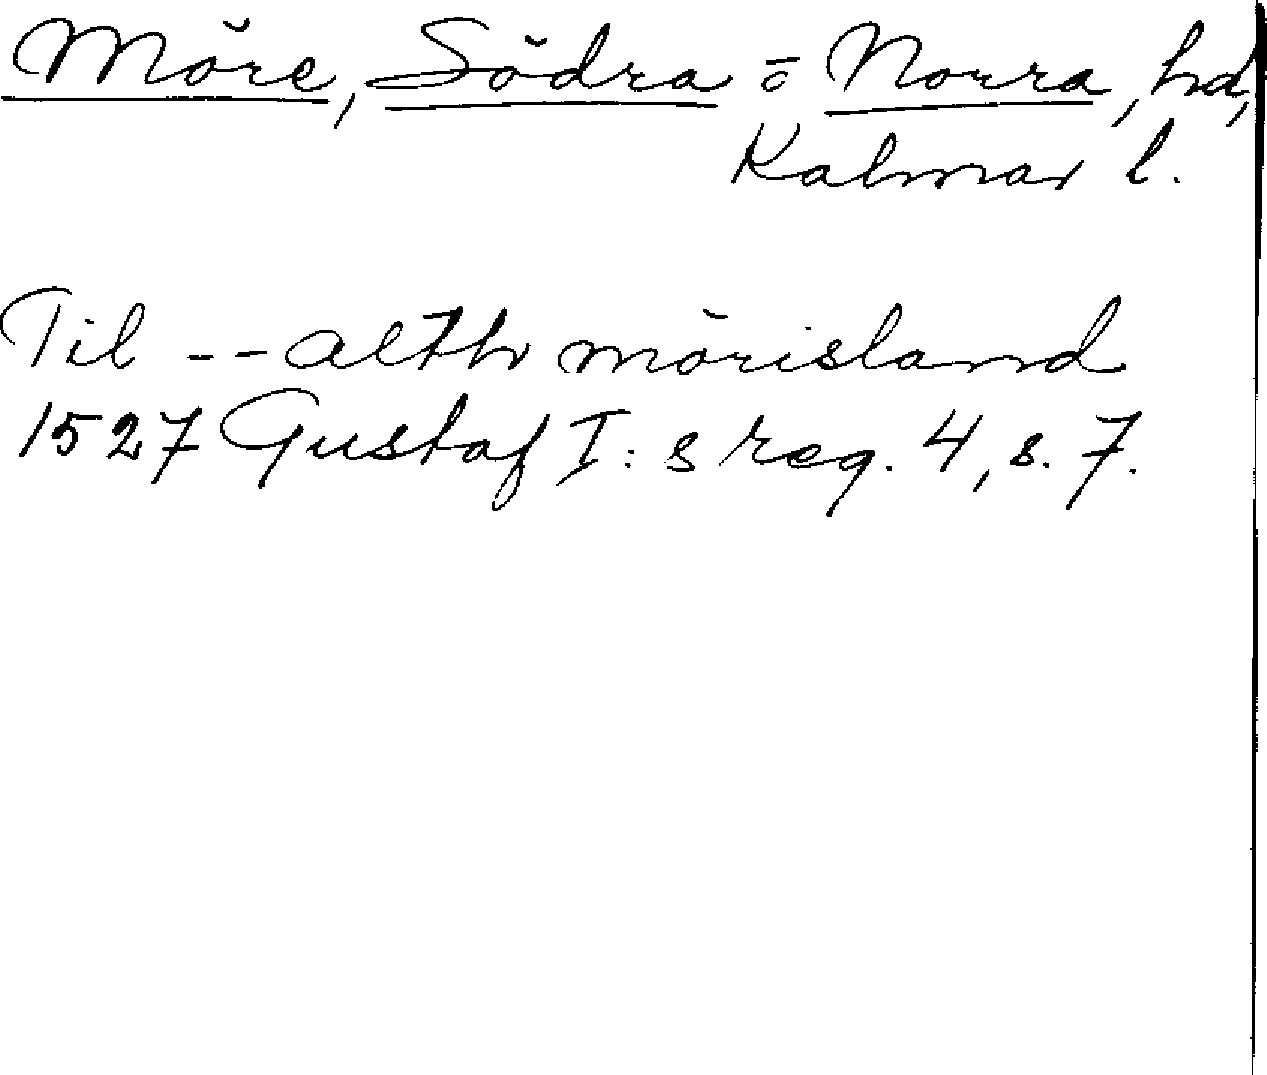 Möre, Södra o Norra, hd,
Kalmar l.
Til -- alth mörisland
1527 Gustaf I:s reg. 4, s. 7.